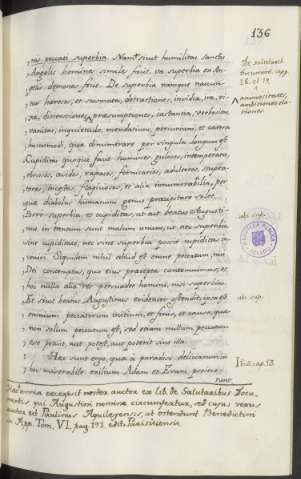 136
tas peccati superbia. Nam sicut humilitas sanctis
Angelis homines similes facit, ita superbia ex An-
gelis demones fecit. De superbia namque nascun-
tur hereses, et scismata, detractiones, invidia, ira, ri-
xa, dissensiones, praesumptiones, iactantia, verbositas,
vanitas, inquietudo, mendatium, periurium, et caetera
huiusmodi, quae dinumerare per singula longum est.
Cupiditas quoque facit homines gulosos, intemperatos,
ebrios, avidos, rapaces, fornicarios, adulteros, stupra-
tores, incestos, flagitiosos, et alia innumerabilia, per
quae diabolus humanum genus praecipitare solet.
Porro superbia, et cupiditas, ut ait beatus Augusti-
nus in tantum sunt malum unum, ut nec superbia
sine cupiditate, nec sine superbia possit cupiditas in-
veniri. Siquidem nihil aliud est omne peccatum, nisi
Dei contemptus, quo eius praecepta contemnimus, et
hoc nulla alia res persuadet homini, nisi superbia.
Et sicut beatus Augustinus evidenter ostendit, ipsa est
omnium peccatorum initium, et finis, et causa, quia
non solum peccatum est, sed etiam nullum peccatum
fieri potuit, aut potest, aut poterit sine illa.
Haec sunt ergo, quae a paradisi deliciarum in
hoc miserabile exilium Adam et Evam proiece-
runt
De salutarib.
Document. cap.
18. et 19
animositates,
ambitiones ela-
tiones
ubi sup.
ubi sup.
Ibid. cap. 18.
Haec omnia excerpsit noster auctor ex lib. de Salutaribus Docu-
mentis qui Augustini nomine circumfertur, sed cujus verus
auctor est Paulinus Aquilejensis, ut ostendunt Benedictini
in App. Tom. VI. pag. 191 edit. Parisiensis